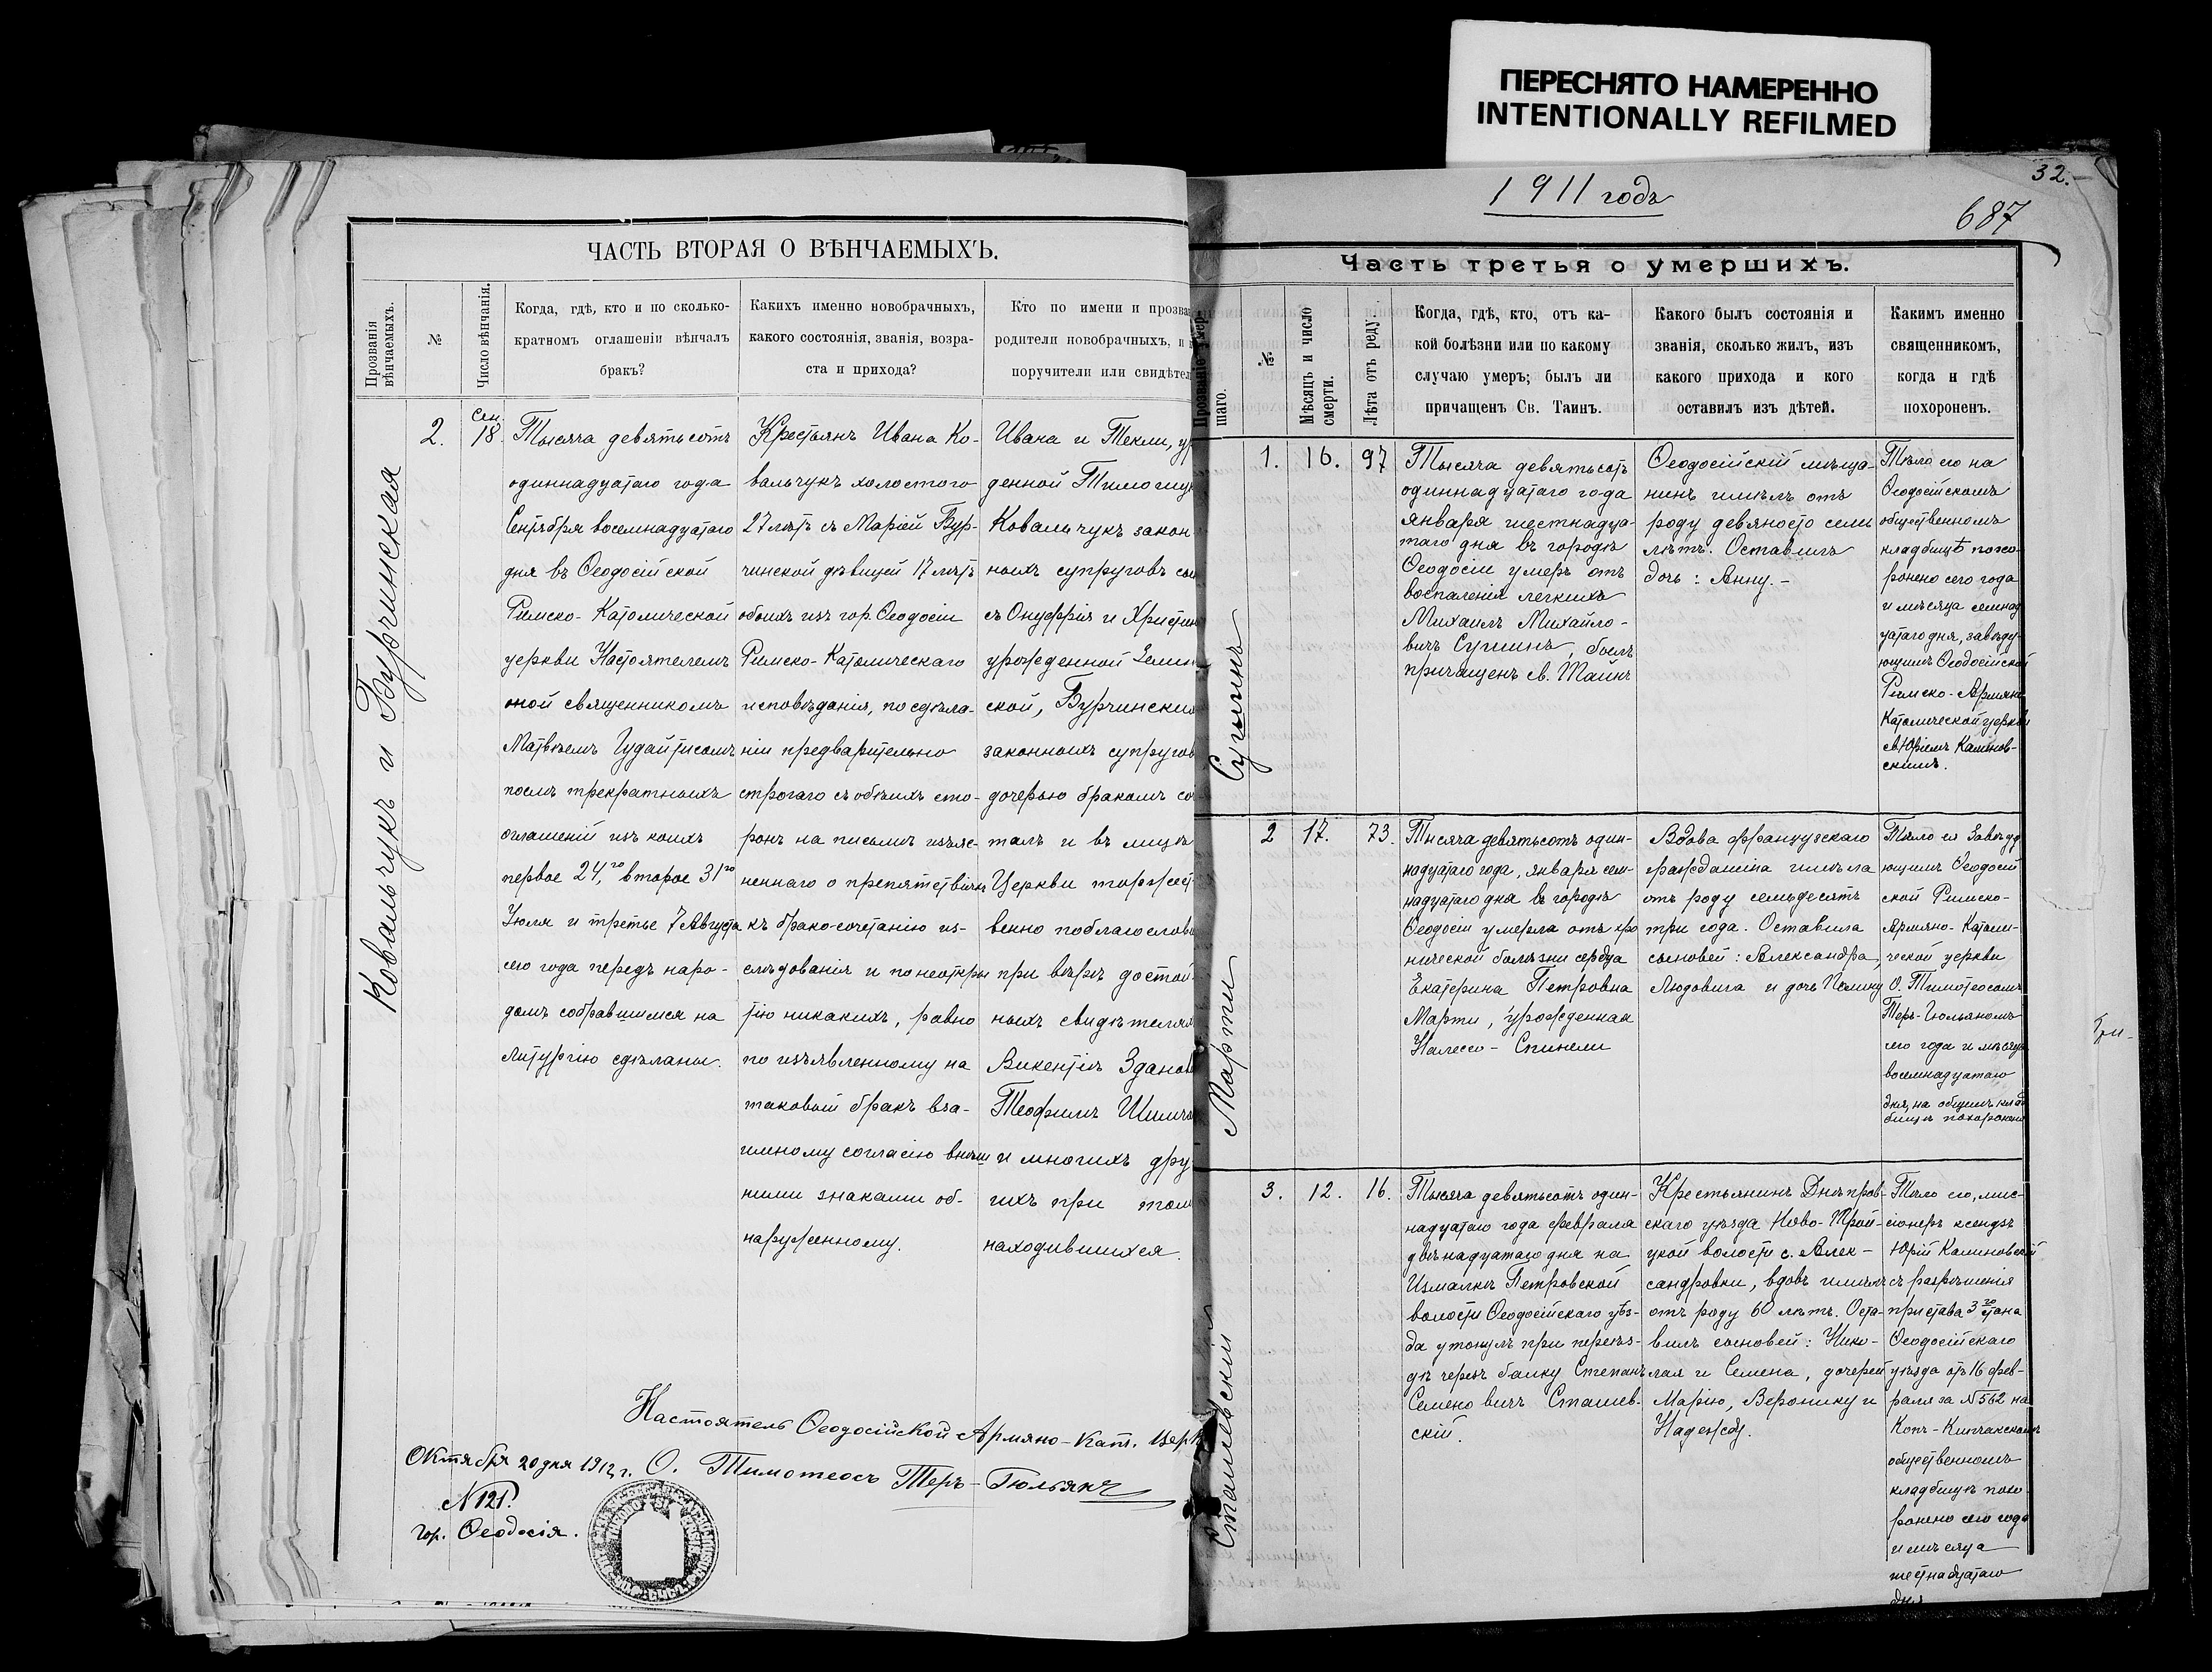 ПЕРЕСНЯТО НАМЕРЕННО
INTENTIONALLY REFILMED
ЧАСТЬ ВТОРАЯ О ВѢНЧАЕМЫХЪ.
Прозванія вѣнчаемыхъ.
№
Число вѣнчанія.
Когда, гдѣ, кто и по сколько-
кратномъ оглашеніи вѣнчалъ
бракъ?
Каихъ именно новобрачныхъ,
какого состоянія, званія, возра-
ста и прихода?
Кто по имени и прозва
родители новобрачныхъ, и
поручители или свидѣтел
Ковальчукъ и Бурчинская
2.
Сен.
18.
Тысяча девятьсотъ
одиннадцатаго года
Сентября восемнадцатаго
дня въ Ѳеодосійской
Римско-Католической
церкви Настоятелемъ
оной священникомъ
Матвѣемъ Гудайтисомъ
послѣ трекратныхъ
оглашеній изъ коихъ
первое 24,го второе 31го
Іюля и третье 7 Августа
сего года передъ наро-
домъ собравшимся на
литургію сдѣланы.
Крестьянъ Ивана Ко-
вальчукъ холостого
27 лѣтъ съ Маріей Бур-
чинской дѣвицей 17 лѣтъ
обоихъ изъ гор. Ѳеодосіи
Римско-Католическаго
исповѣданія, по сдѣла-
ніи предварительно
строгаго съ обѣихъ сто-
ронъ на письмѣ изъяс-
неннаго о препятствіяхъ
къ брако-сочетанію из-
слѣдованія и по неоткры
тію никакихъ, равно
по изъявленному на
таковый бракъ вза-
имному согласію внѣш
ними знаками об-
наруженному.
Ивана и Текли, ур
денной Тимощу
Ковальчукъ закон
ныхъ супруговъ сын
съ Онуфрія и Христин
урожденной Зелин
ской, Бурчински
законныхъ супругов
дочерью бракомъ со
талъ и въ лицѣ
Церкви торжест-
венно поблагослови
при вѣрѣ достой-
ныхъ свидѣтеля
Викентія Зданов
Теофилъ Шимча
и многихъ дру
гихъ при том
находившихся.
Настоятель Ѳеодосійской Армяно-Кат. Церк
Октября 20 дня 1912 г. О. Тимотеосъ Теръ-Гюльянъ
№ 121.
гор. Ѳеодосія.
1911 годъ
32.
687
Часть третья о умершихъ.
шаго.
№
Мѣсяцъ и число смерти.
Лѣта отъ роду
Когда, гдѣ, кто, отъ ка-
кой болѣзни или по какому
случаю умеръ; былъ ли
причащенъ Св. Таинъ.
Какого былъ состоянія и
званія, сколько жилъ, изъ
какого прихода и кого
оставилъ изъ дѣтей.
Какимъ именно
священникомъ,
когда и гдѣ
похороненъ.
1.
16.
97
Тысяча девятьсотъ
одиннадцатаго года
января шестнадца-
таго дня въ городѣ
Ѳеодосіи умеръ отъ
воспаленія легкихъ
Михаилъ Михайло-
вичъ Сугинъ, былъ
причащенъ св. Таинъ
Ѳеодосійскій мѣща-
нинъ имѣлъ отъ
роду девяносто семь
лѣтъ. Оставилъ
дочь: Анну.-
Тѣло его на
Ѳеодосійскомъ
общественномъ
кладбищѣ похо-
ронено сего года
и мѣсяца семнад
цатаго дня, завѣду-
ющимъ Ѳеодосійской
Римско-Армяно
Католической церкви
св. Юріемъ Калинов-
скимъ.
Марти
2
17.
73.
Тысяча девятьсотъ один-
надцатаго года, января сем-
надцатаго дня въ городѣ
Ѳеодосіи умерла отъ хро
нической болѣзни сердца
Екатерина Петровна
Марти, урожденная
Спинели
Вдова французскаго
гражданина имѣла
отъ роду семьдесятъ
три года. Оставила
сыновей: Александра,
Людовига и дочь Полину
Тѣло ея Завѣду
ющимъ Ѳеодосій
ской Римско-
Армяно-Католи-
ческой церкви
О. Тимотеосомъ
Теръ-Гюльяномъ
сего года и мѣсяца
восемнадцатаго
дня, на общемъ клад
бищѣ похоронено
Сташевскій
3.
12.
16.
Тысяча девятьсотъ один-
надцатаго года февраля
двѣнадцатаго дня на
Измалкѣ Петровской
волости Ѳеодосійскаго уѣз-
да утонулъ при переѣз-
дѣ черезъ балку Степанъ
Семеновичъ Сташев-
скій.
Крестьянинъ Днѣпров-
скаго уѣзда Ново-Трой-
цкой волости с. Алек-
сандровки, вдовъ имѣлъ
отъ роду 60 лѣтъ. Оста-
вилъ сыновей: Нико-
лая и Семена, дочерей
Марію, Веронику и
Надежду.
Тѣло его, мис-
сіонеръ ксендзъ
Юрій Калиновскій
съ разрѣшенія
пристава 3го стана
Ѳеодосійскаго
уѣзда отъ 16 фев-
раля за № 562 на
Копъ-Кипчакскомъ
общественномъ
кладбищѣ похо
ронено сего года
и мѣсяца
шестнадцатаго
дня